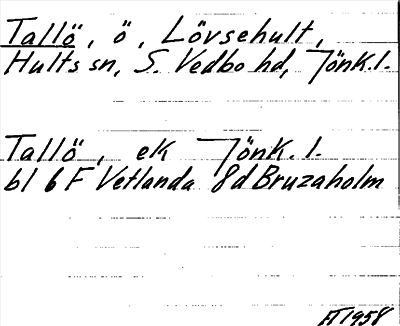 Tallö, ö, Lövsehult,
Hults sn, S. Vedbo hd, Jönk.l.
Tallö, ek Jönk.l.
bl 6 F Vetlanda 8d Bruzaholm
1958